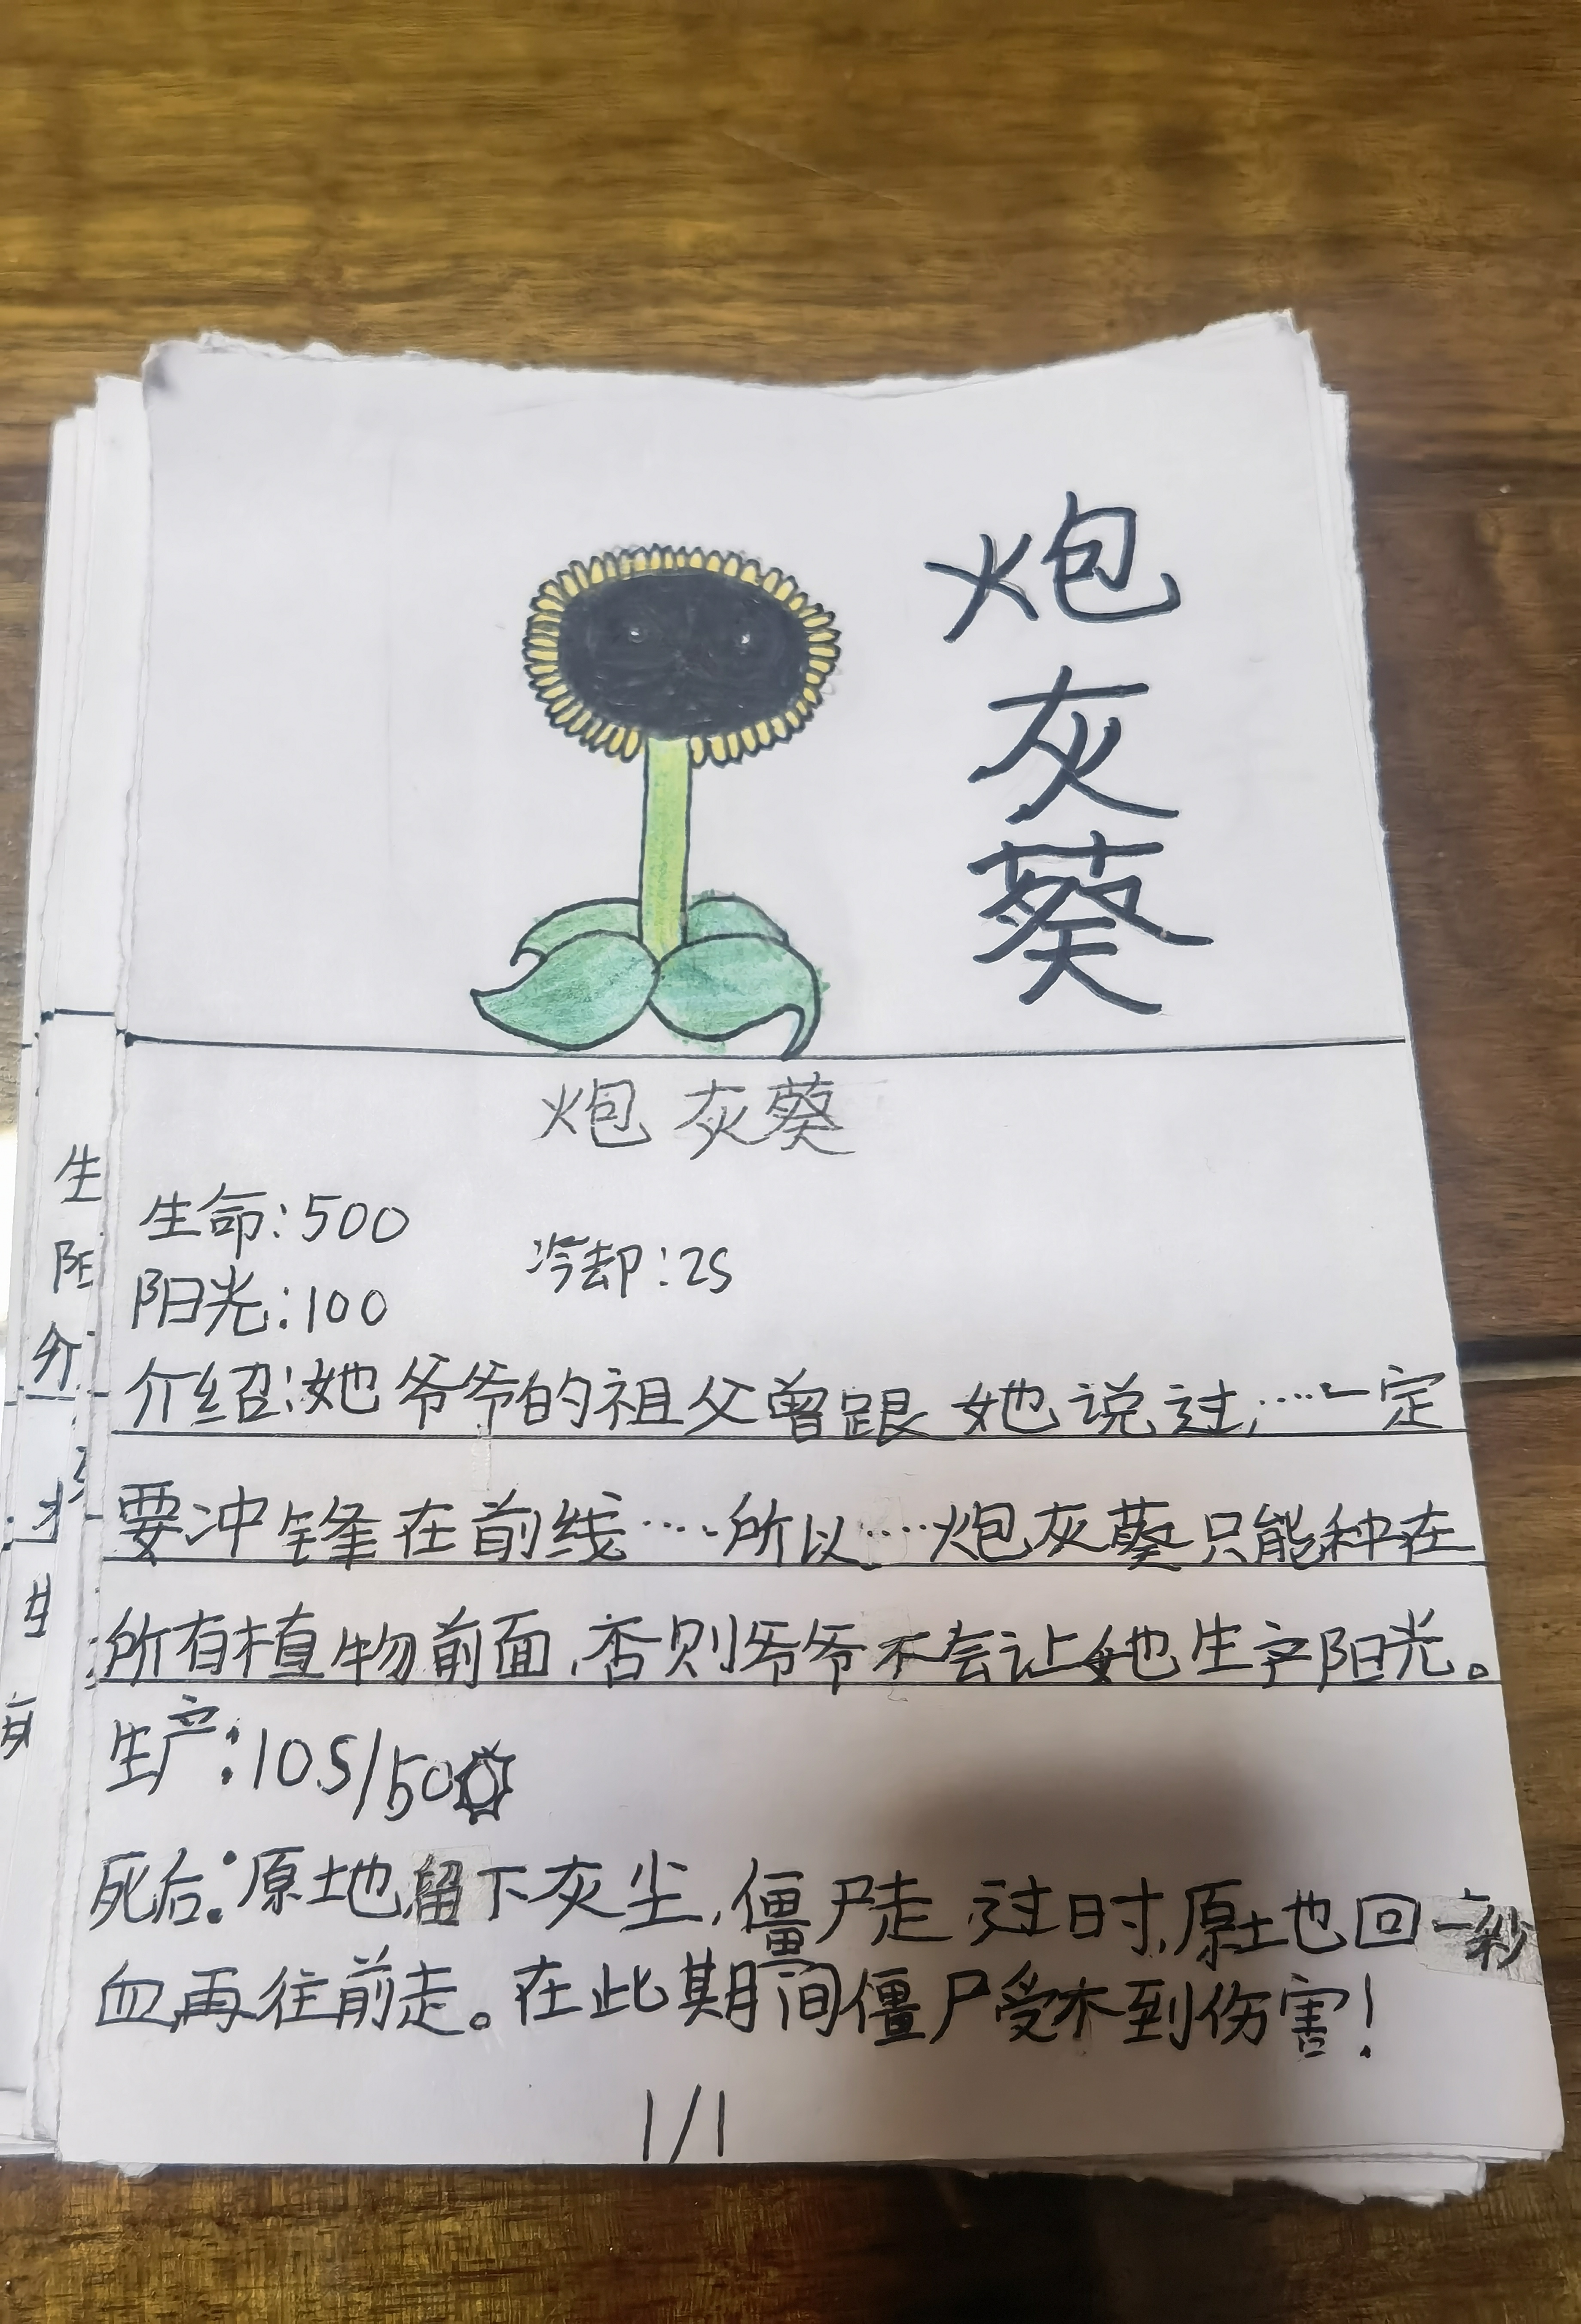 炮
灰
葵
炮灰葵
生命:500
冷却:2S
阳光:100
介绍:她爷爷的祖父曾跟她说过,……一定
要冲锋在前线……所以……炮灰葵只能种在
所有植物前面,否则爷爷不会让她生产阳光。
生产:10S/50
死后:原地留下灰尘,僵尸走过时,原地回一秒
血再往前走。在此期间僵尸受不到伤害!
1/1
生
阳
介